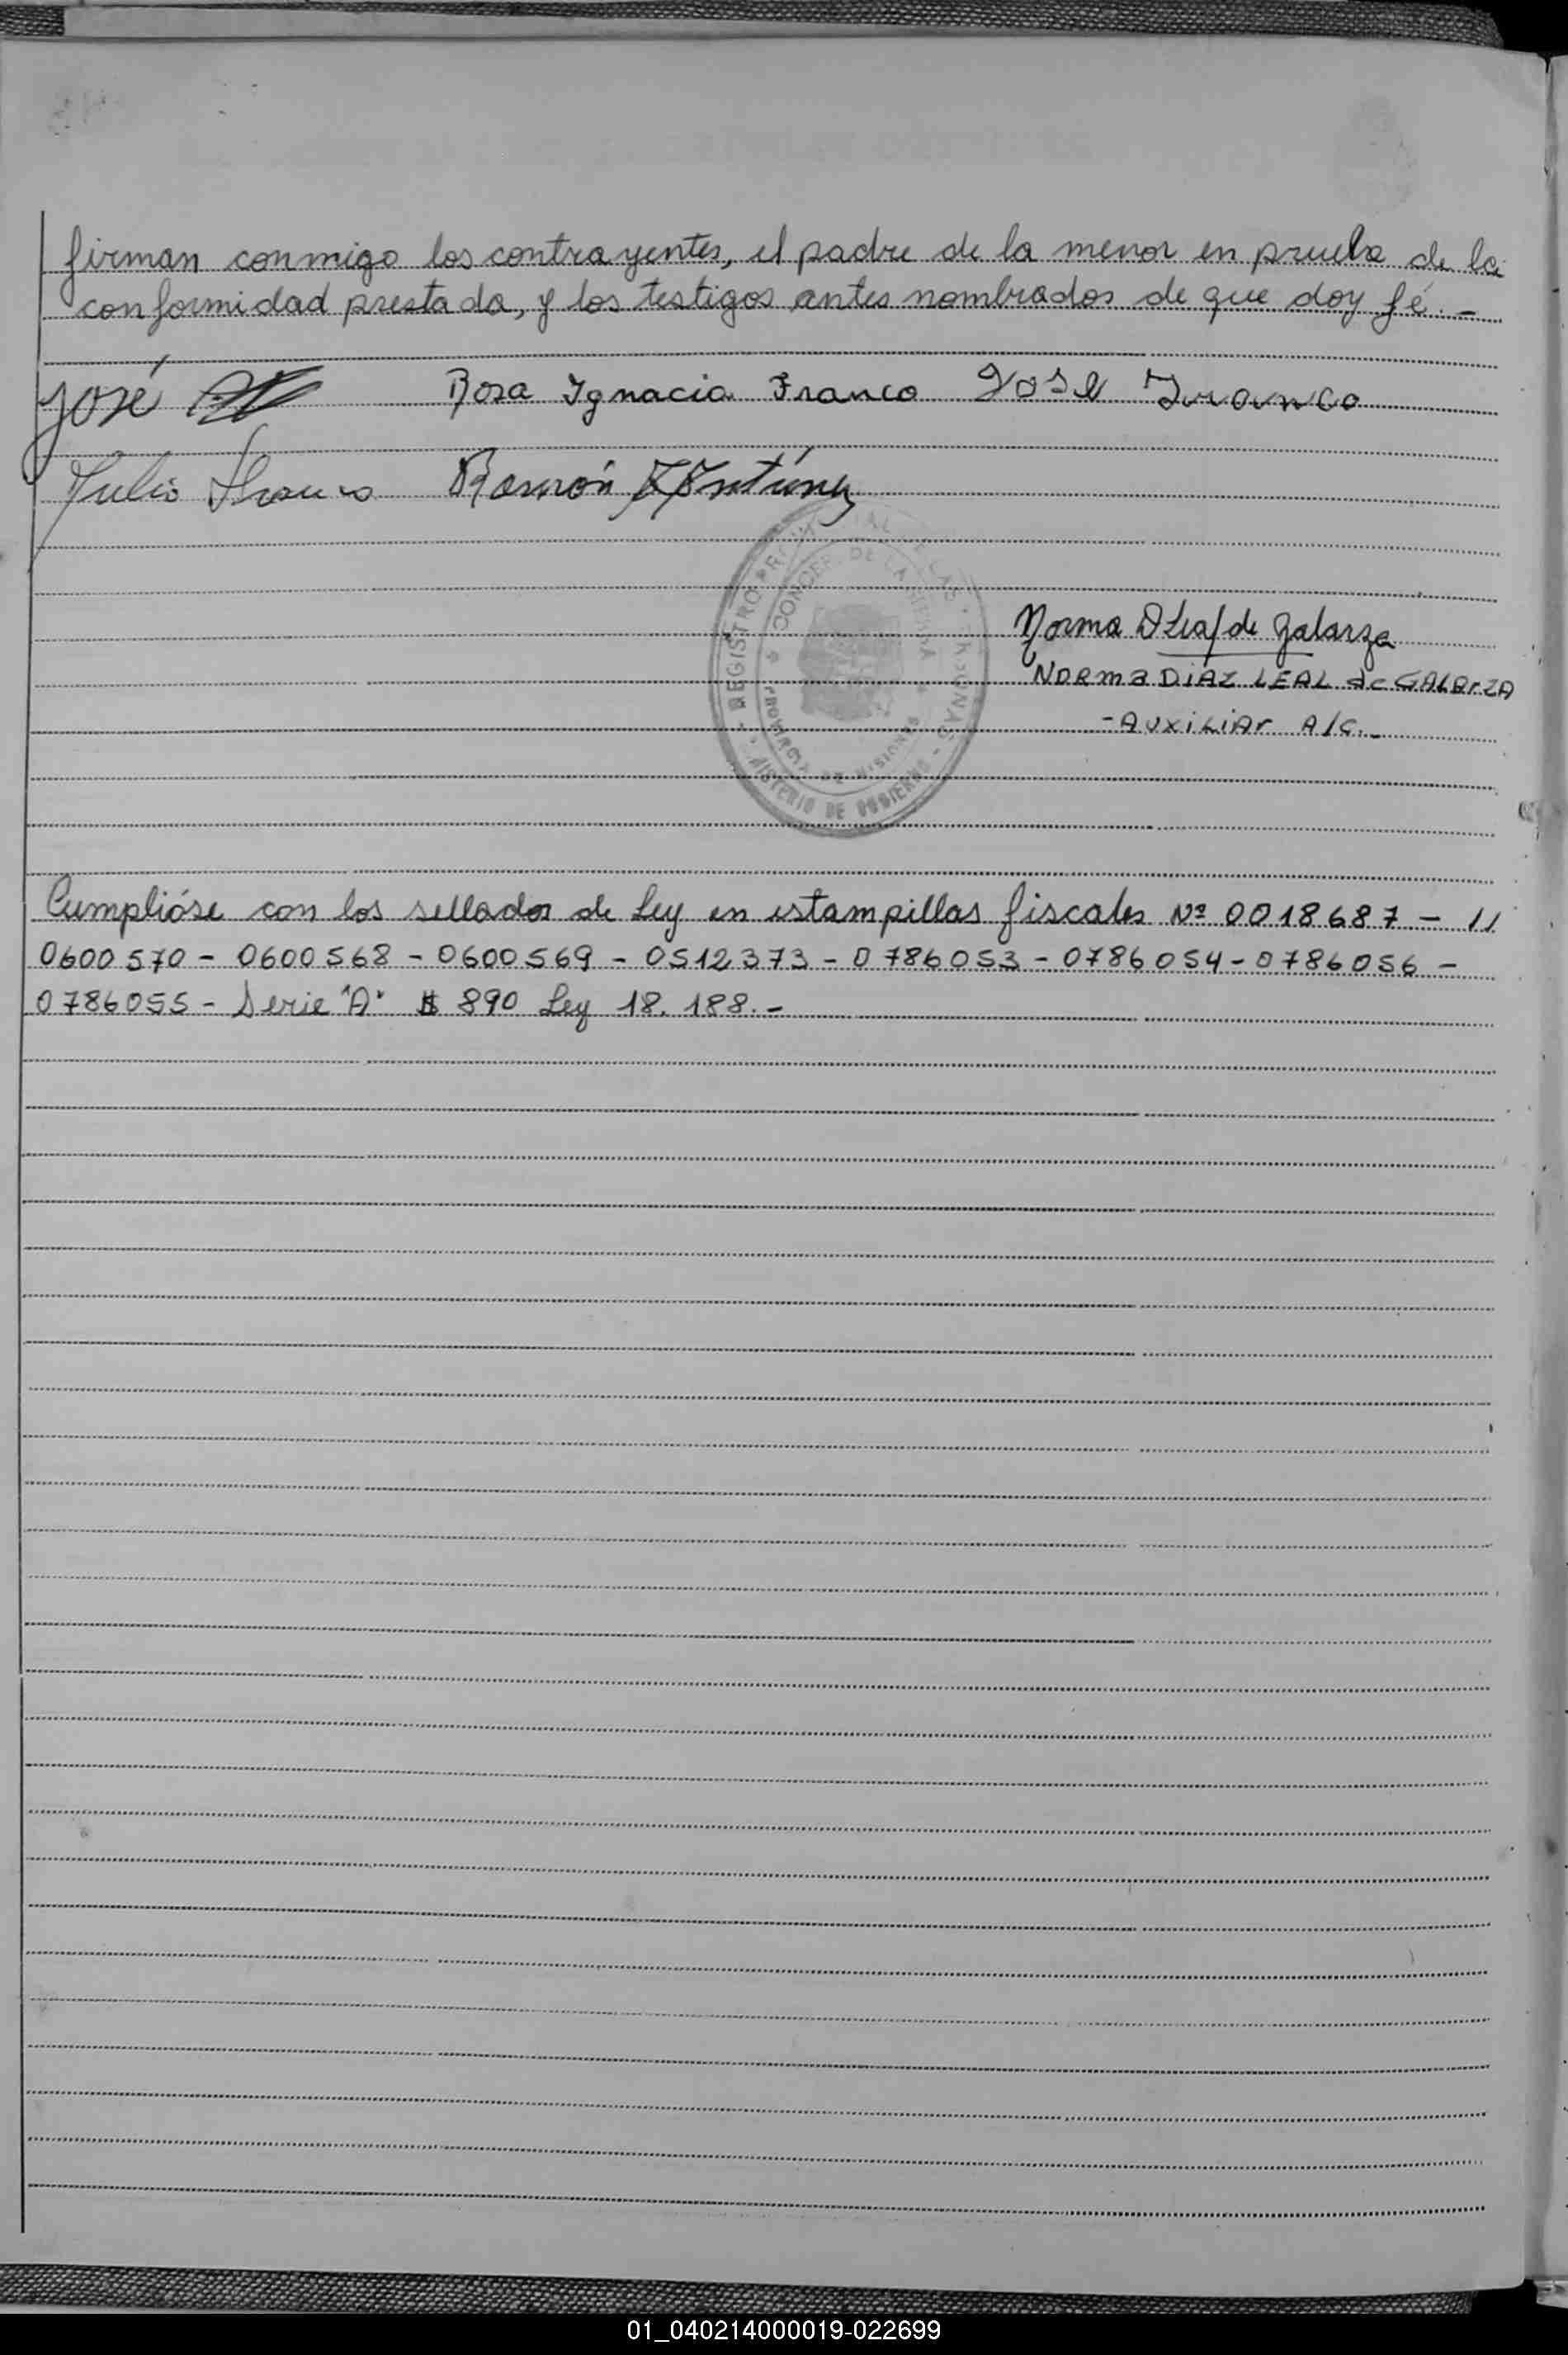 firman conmigo los contrayentes, el padre de la menor en prueba de la
conformidad prestada, y los testigos antes nombrados de que doy fé. -
José
Rosa Ignacia Franco José Franco
Julio Franco Ramón Antúnez
REGISTRO PROVINCIAL DE LAS PERSONAS
MINISTERIO DE GOBIERNO
PROVINCIA DE MISIONES
Norma D Leal de Galarza
NORMA DIAZ LEAL de GALArZA
- AUXiLiAr A/C. -
Cumplióse con los sellados de Ley en estampillas fiscales Nº 0018687 - 11
0600570 - 0600568 - 0600569 - 0512373 - 0786053 - 0786054 - 0786056 -
0786055 - Serie "A" $ 890 Ley 18.188. -
01_040214000019-022699